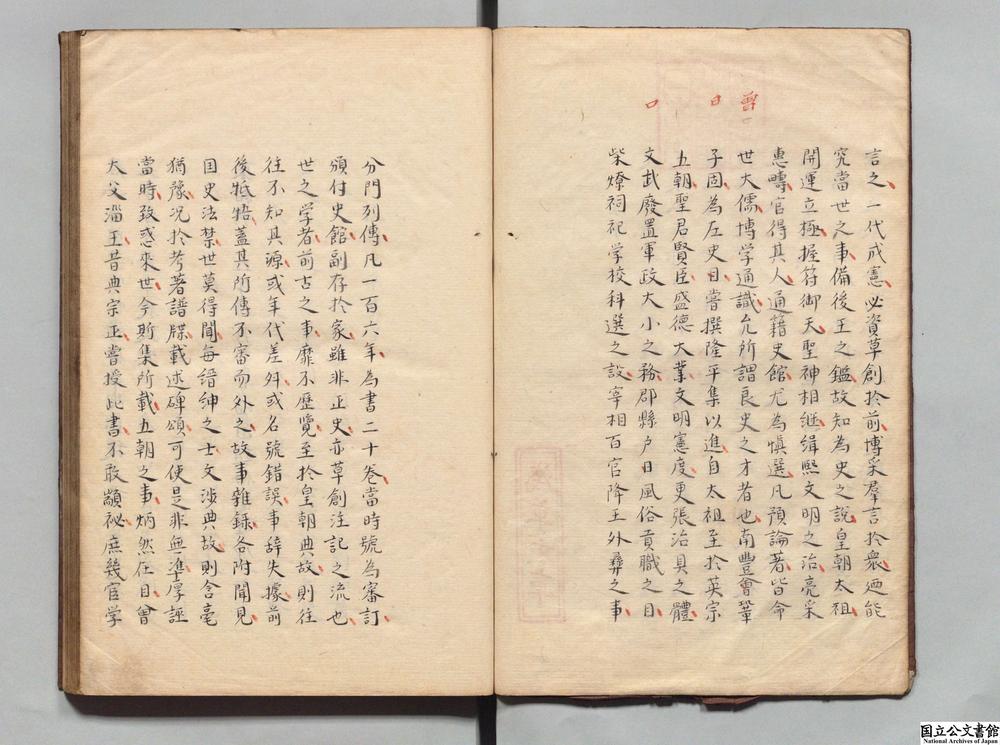 言之一代成憲必資草創於前博采羣言於衆廼能
究當世之事備後王之鑑故知為史之說皇朝太祖
開運立極握符御天聖神相継緝熙文明之治亮采
惠疇官得其人通籍史館尤為慎選凡預論著皆命
世大儒博学通識允所謂良史之才者也南豐曾鞏
子固為左史日嘗撰隆平集以進自太祖至於英宗
五朝聖君賢臣盛德大業文明憲度更張治具之體
文武廢置軍政大小之務郡縣户日風俗貢職之目
柴燎祠祀学校科選之設宰相百官降王外彝之事
曾
日
口
分門列傳凡一百六年為書二十卷當時號為審訂
頒付史館副存於家雖非正史亦草創注記之流也
世之学者前古之事靡不歷覽至於皇朝典故則往
往不知其源或年代差舛或名號錯誤事辞失據前
後牴牾蓋其所傳不審而外之故事雜録各附聞見
国史法禁世莫得聞每縉紳之士文涉典故則含毫
猶豫况於考著譜牒載述碑頌可使是非無準厚誣
當時致惑來世今斯集所載五朝之事炳然在目曾
大父淄王昔典宗正嘗授此書不敢顓祕庶幾官学
国立公文書館
National Archives of Japan